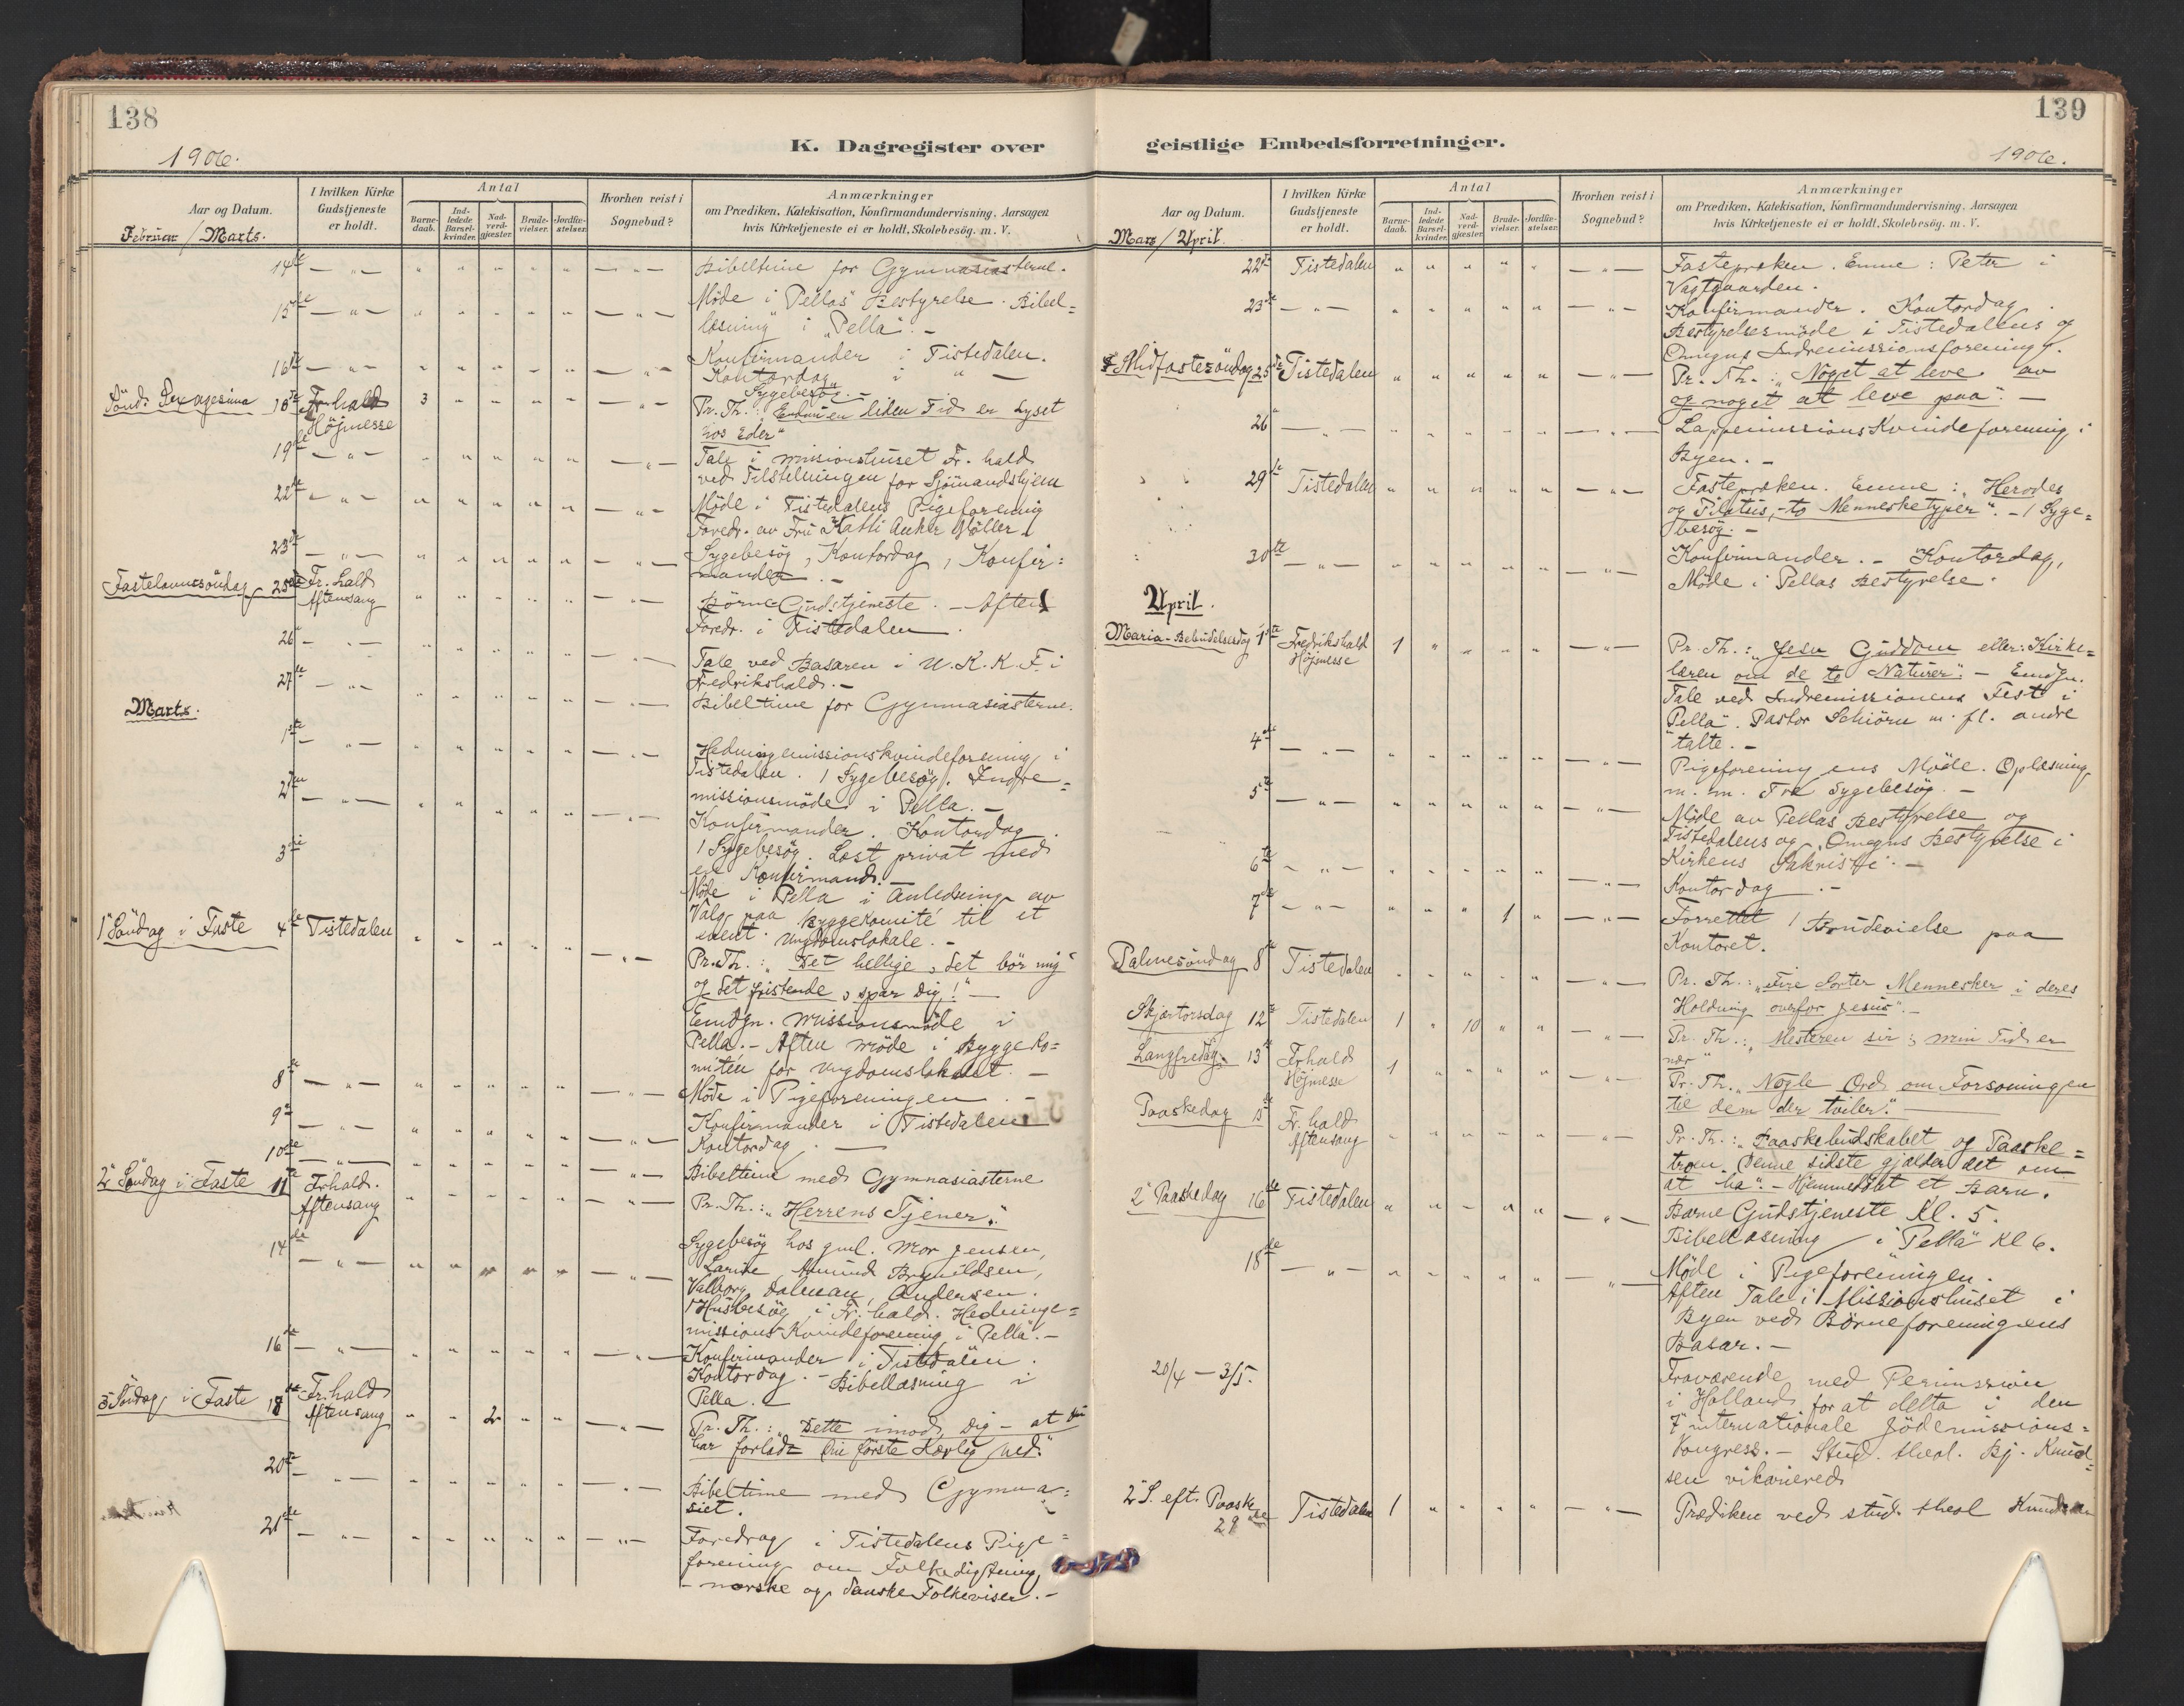 138
1906.
K. Dagregister over
Aar og Datum.
I hvilken Kirke Gudstjeneste er holdt.
Antal
Barne-daab.
Ind-ledede Barsel-kvinder.
Nad-verd-gjæster.
Brude-vielser.
Jordfæ-stelser.
Hvorhen reist i Sognebud?
Anmærkninger
om Prædiken, Katekisation, Konfirmandundervisning, Aarsagen
hvis Kirketjeneste ei er holdt, Skolebesög. m. V.
Februar / Marts.
14de — " — " " " " " — " — Bibeltime for Gymnasiasterne.
15de — " — " " " " " — " — Möde i "Pellas" Bestyrelse. Bibel=
læsning i "Pella". —
16de — " — " " " " " — " — Konfirmander i Tistedalen.
Kontordag i " —
Sygebesög. —
Sönd. Sexagesima 18de Fr.hald Höjmesse 3 " " " " — " — Pr. Th.: Endnu en liden Tid er Lyset
hos Eder"
19de — " — " " " " " — " — Tale i missionshuset Fr. hald
ved Tilstelningen for Sjömandshjem
22de — " — " " " " " — " — Möde i Tistedalens Pigeforening
Foredr. av Fru Katti Anker Möller
23de — " — " " " " " — " — Sygebesög, Kontordag, Konfir=
mander. —
Fastelavnssöndag 25de Fr. hald Aftensang " " " " " — " — Börne-Gudstjeneste. — Aften
Foredr. i Tistedalen.
26de — " — " " " " " — " — Tale ved Basaren i U. K. K. F. i
Fredrikshald. —
27de — " — " " " " " — " — Bibeltime for Gymnasiasterne.
Marts.
1ste — " — " " " " " — " — Hedningemissionskvindeforening i
Tistedalen. 1 Sygebesög. Indre=
missionsmöde i Pella. —
2den — " — " " " " " — " — Konfirmander. Kontordag.
1 Sygebesög. Læst privat med
en Konfirmand. —
3die Möde i Pella i Anledning av
Valg paa Byggekomité til et
event. Ungdomslokale. —
1" Söndag i Faste 4de Tistedalen " " " " " — " — Pr. Th.: "Det hellige, det bör mig"
og det fristende, spar dig!" —
Emdgn. Missionsmöde i
Pella. — Aften Möde i Byggeko=
mitéen for Ungdomslokalet. —
8de — " — " " " " " — " — Möde i Pigeforeningen. —
9de — " — " " " " " — " — Konfirmander i Tistedalen
Kontordag. —
10de — " — " " " " " — " — Bibeltime med Gymnasiasterne
2" Söndag i Faste 11te Fr.hald. Aftensang " " " " " — " — Pr. Th.: "Herrens Tjener".
14de — " — " " " " " — " — Sygebesög hos gml. Mor Jensen,
Larine, Amund Brynildsen,
Valborg Dalman, Andersen.
1 Husbesög i Fr. hald. Hedninge=
missions Kvindeforening i "Pella". —
16de — " — " " " " " — " — Konfirmander i Tistedalen.
Kontordag. — Bibellæsning i
Pella. —
3" Söndag i Faste 18de Fr.hald Aftensang " " 2 " " — " — Pr. Th.: "Dette imod Dig — at du
har forladt din förste Kærlighed."
20de — " — " " " " " — " — Bibeltime med Gymna=
siet.
21de — " — " " " " " — " — Foredrag i Tistedalens Pige=
forening om Folkedigtning,
— norske og danske Folkeviser. —
139
1906.
geistlige Embedsforretninger.
Aar og Datum.
I hvilken Kirke Gudstjeneste er holdt.
Antal
Barne-daab.
Ind-ledede Barsel-kvinder.
Nad-verd-gjæster.
Brude-vielser.
Jordfæ-stelser.
Hvorhen reist i Sognebud?
Anmærkninger
om Prædiken, Katekisation, Konfirmandundervisning, Aarsagen
hvis Kirketjeneste ei er holdt, Skolebesög. m. V.
Mars / April.
22de Tistedalen " " " " " — " — Fastepræken. Emne: Peter i
Vagtgaarden.
23de — " — " " " " " — " — Konfirmander. Kontordag.
Bestyrelsesmöde i Tistedalens og
Omegns Indremissionsforening.
Midfastesöndag 25de Tistedalen " " " " " — " — Pr. Th.: "Noget at leve av
og noget at leve paa". —
26" — " — " " " " " — " — Lappemissions Kvindeforening i
Byen. —
29de Tistedalen " " " " " — " — Fastepræken. Emne: "Herodes
og Pilatus, — to Mennesketyper". — 1 Syge=
besög. —
30te — " — " " " " " — " — Konfirmander. — Kontordag,
Möde i Pellas Bestyrelse.
April.
Maria-Bebudelsesdag 1ste Fredrikshald Höjmesse 1 " " " " — " — Pr. Th.: "Jesu Guddom eller: Kirke=
læren om de to Naturer". — Emdgn.
Tale ved Indremissionens Fest i
"Pella". Pastor Schiörn m. fl. andre
talte. —
4de — " — " " " " " — " — Pigeforeningens Möde. Oplæsning
m. m. Tre Sygebesög. —
5te — " — " " " " " — " — Möde av Pellas Bestyrelse og
Tistedalens og Omegns Bestyrelse i
Kirkens Sakristi. —
6te — " — " " " " " — " — Kontordag. —
7de — " — " " " 1 " — " — Forrettet 1 Brudevielse paa
Kontoret.
Palmesöndag 8de Tistedalen " " " " " — " — Pr. Th.: "Fire Sorter Mennesker i deres
Holdning overfor Jesus". —
Skjærtorsdag 12te Tistedalen 1 " 10 " " " — Pr. Th.: "Mesteren sir: min Tid er
nær"
Langfredag 13de Fr.hald Höjmesse 1 " " " " — " — Pr. Th. "Nogle Ord om Forsoningen
til dem der tviler". —
Paaskedag 15de Fr. hald Aftensang " " " " " — " — Pr. Th.: "Paaskebudskabet og Paaske=
troen. Denne sidste gjælder det om
at ha". — Hjemmedöbt et Barn.
2" Paaskedag 16de Tistedalen " " " " " — " — Barne Gudstjeneste Kl. 5.
Bibellæsning i "Pella" Kl 6.
18de — " — " " " " " — " — Möde i Pigeforeningen.
Aften Tale i Missionshuset i
Byen ved Börneforeningens
Basar. —
20/4 — 3/5. Fraværende med Permission
i Holland for at delta i den
7" internationale Jödemissions=
Kongress. — Stud. theol. Bj. Knud=
sen vikarierede
2" S. eft. Paaske 29de Tistedalen 1 " " " " — " — Prædiken ved stud. theol Knudsen